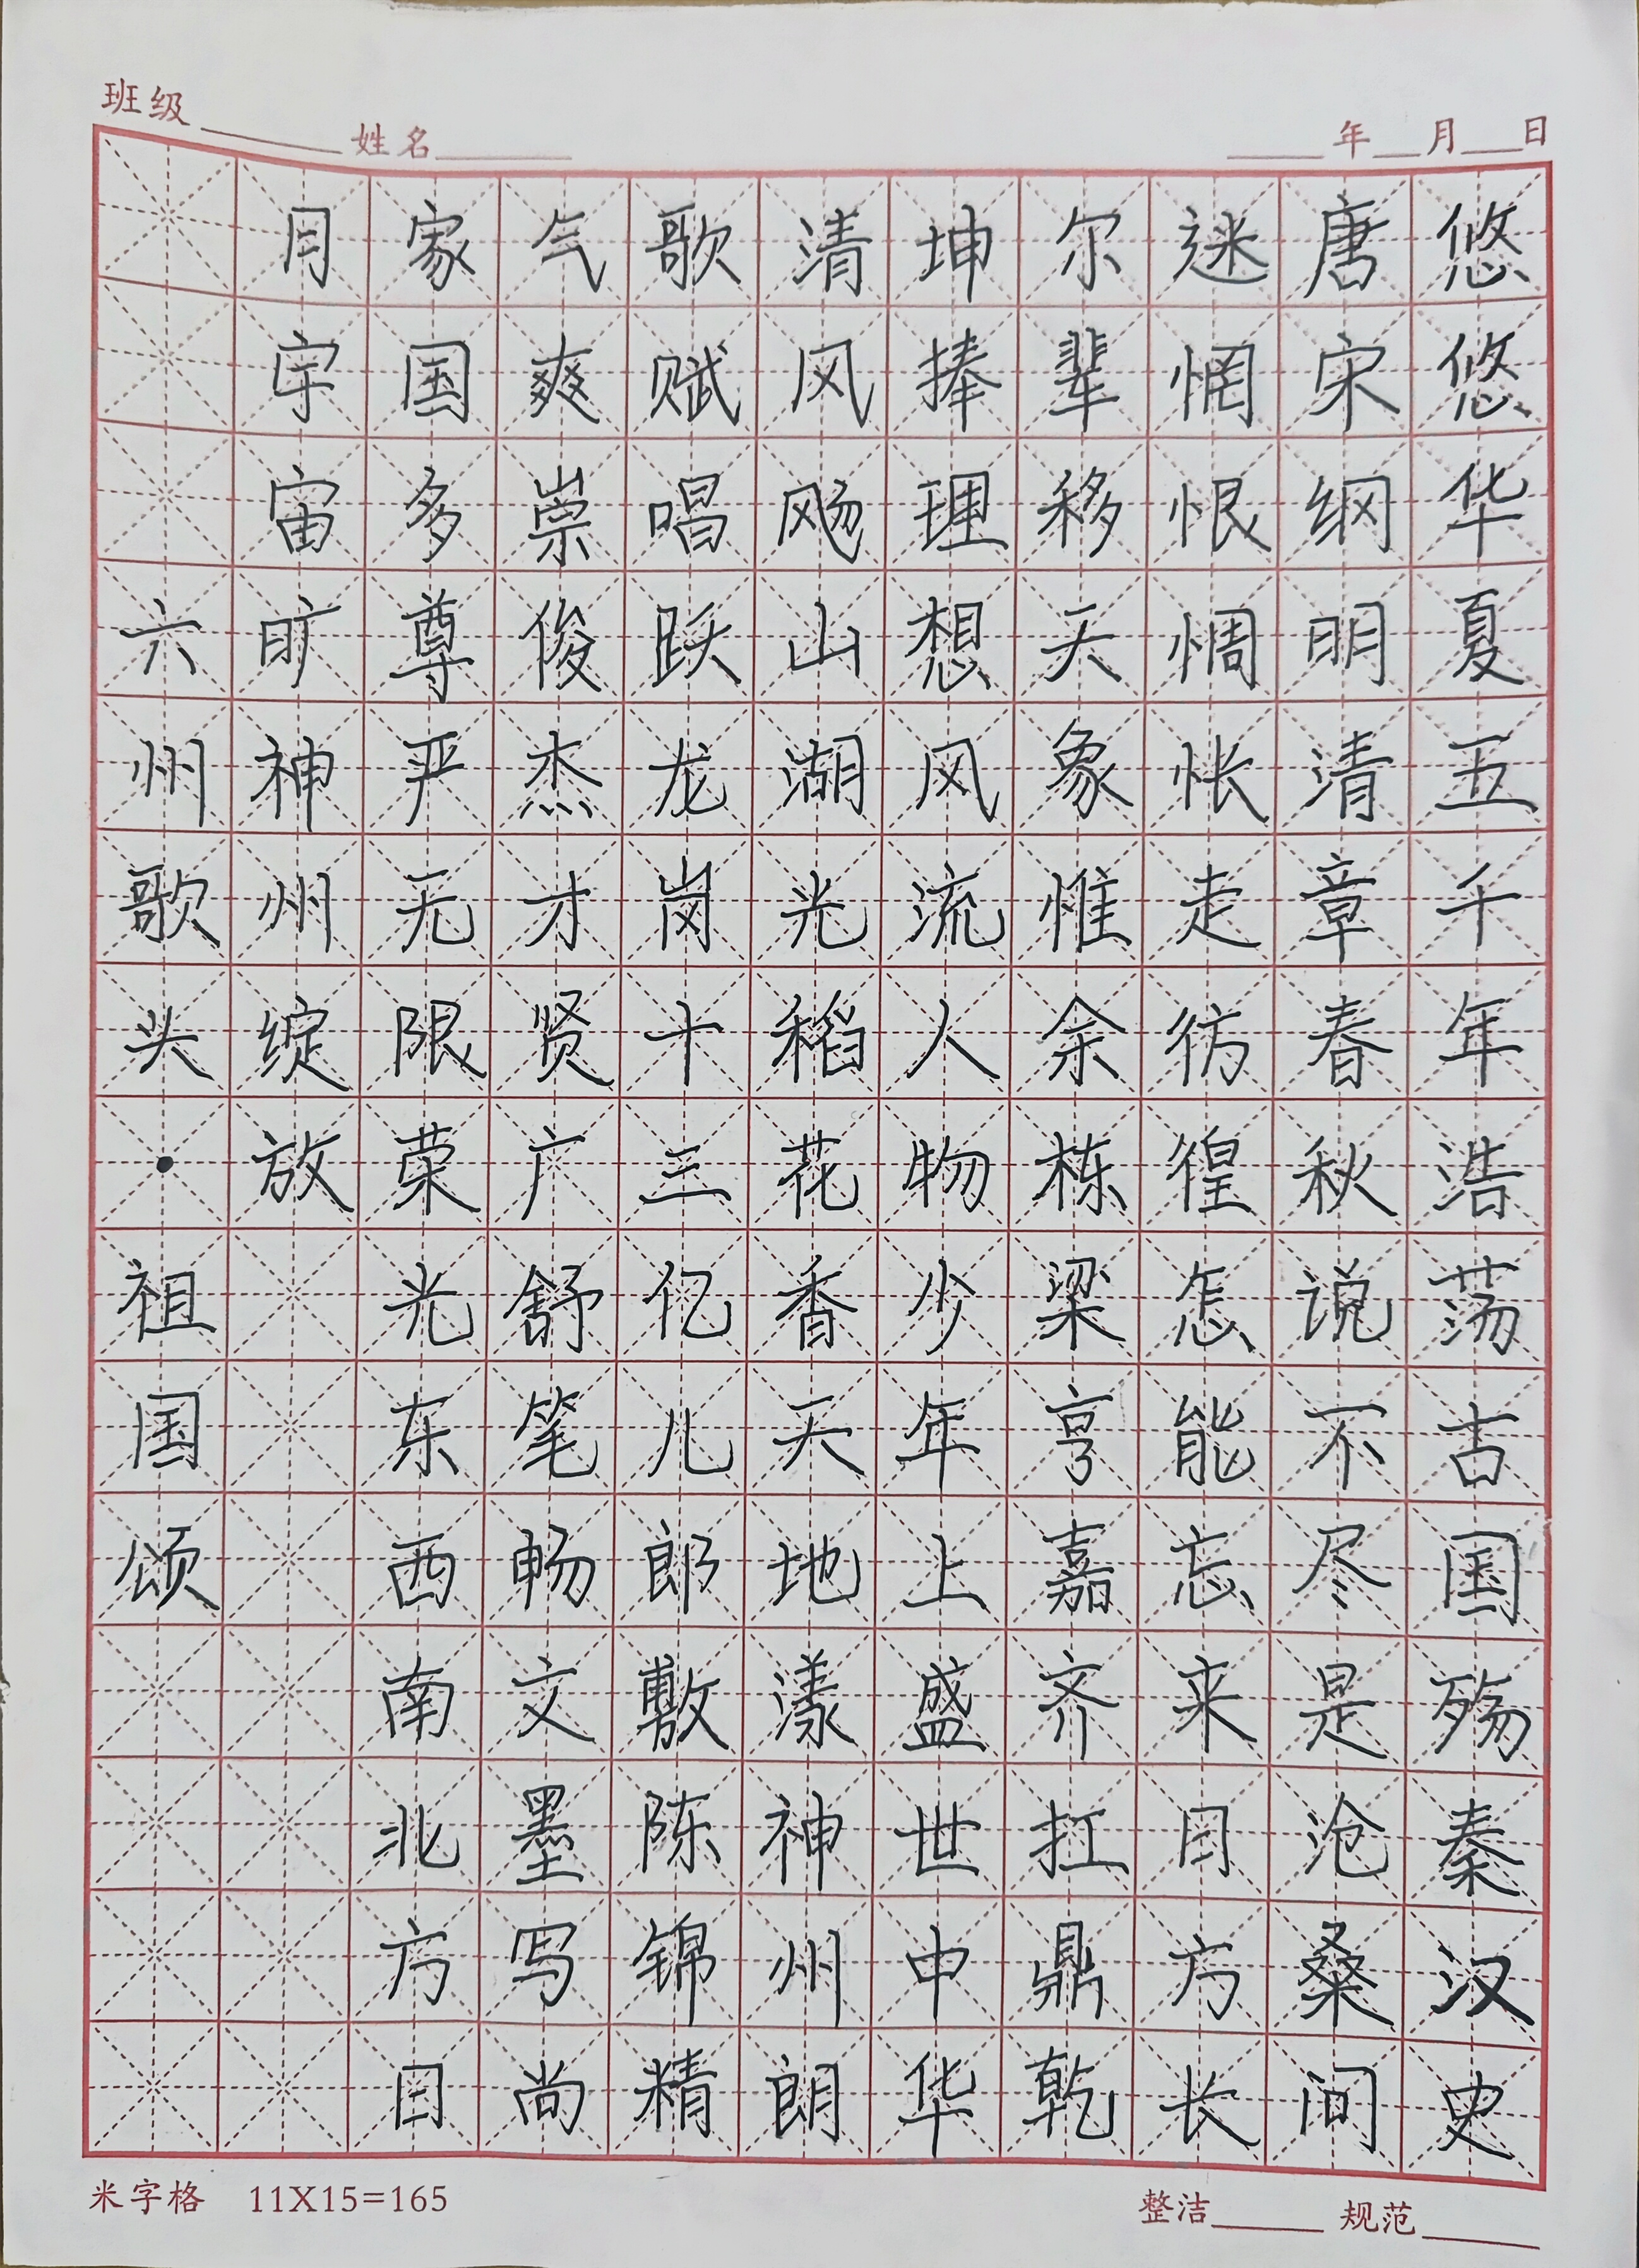 班级 姓名 年 月 日
悠悠华夏五千年浩荡古国殇秦汉史
唐宋纲明清章春秋说不尽是沧桑间
迷惘恨惆怅走彷徨怎能忘来日方长
尔辈移天象惟余栋梁亨嘉齐扛鼎乾
坤捧理想风流人物少年上盛世中华
清风飏山湖光稻花香天地漾神州朗
歌赋唱跃龙岗十三亿儿郎敷陈锦精
气爽崇俊杰才贤广舒笔畅文墨写尚
家国多尊严无限荣光东西南北方日
月宇宙旷神州绽放
六州歌头·祖国颂
米字格 11X15=165 整洁 规范